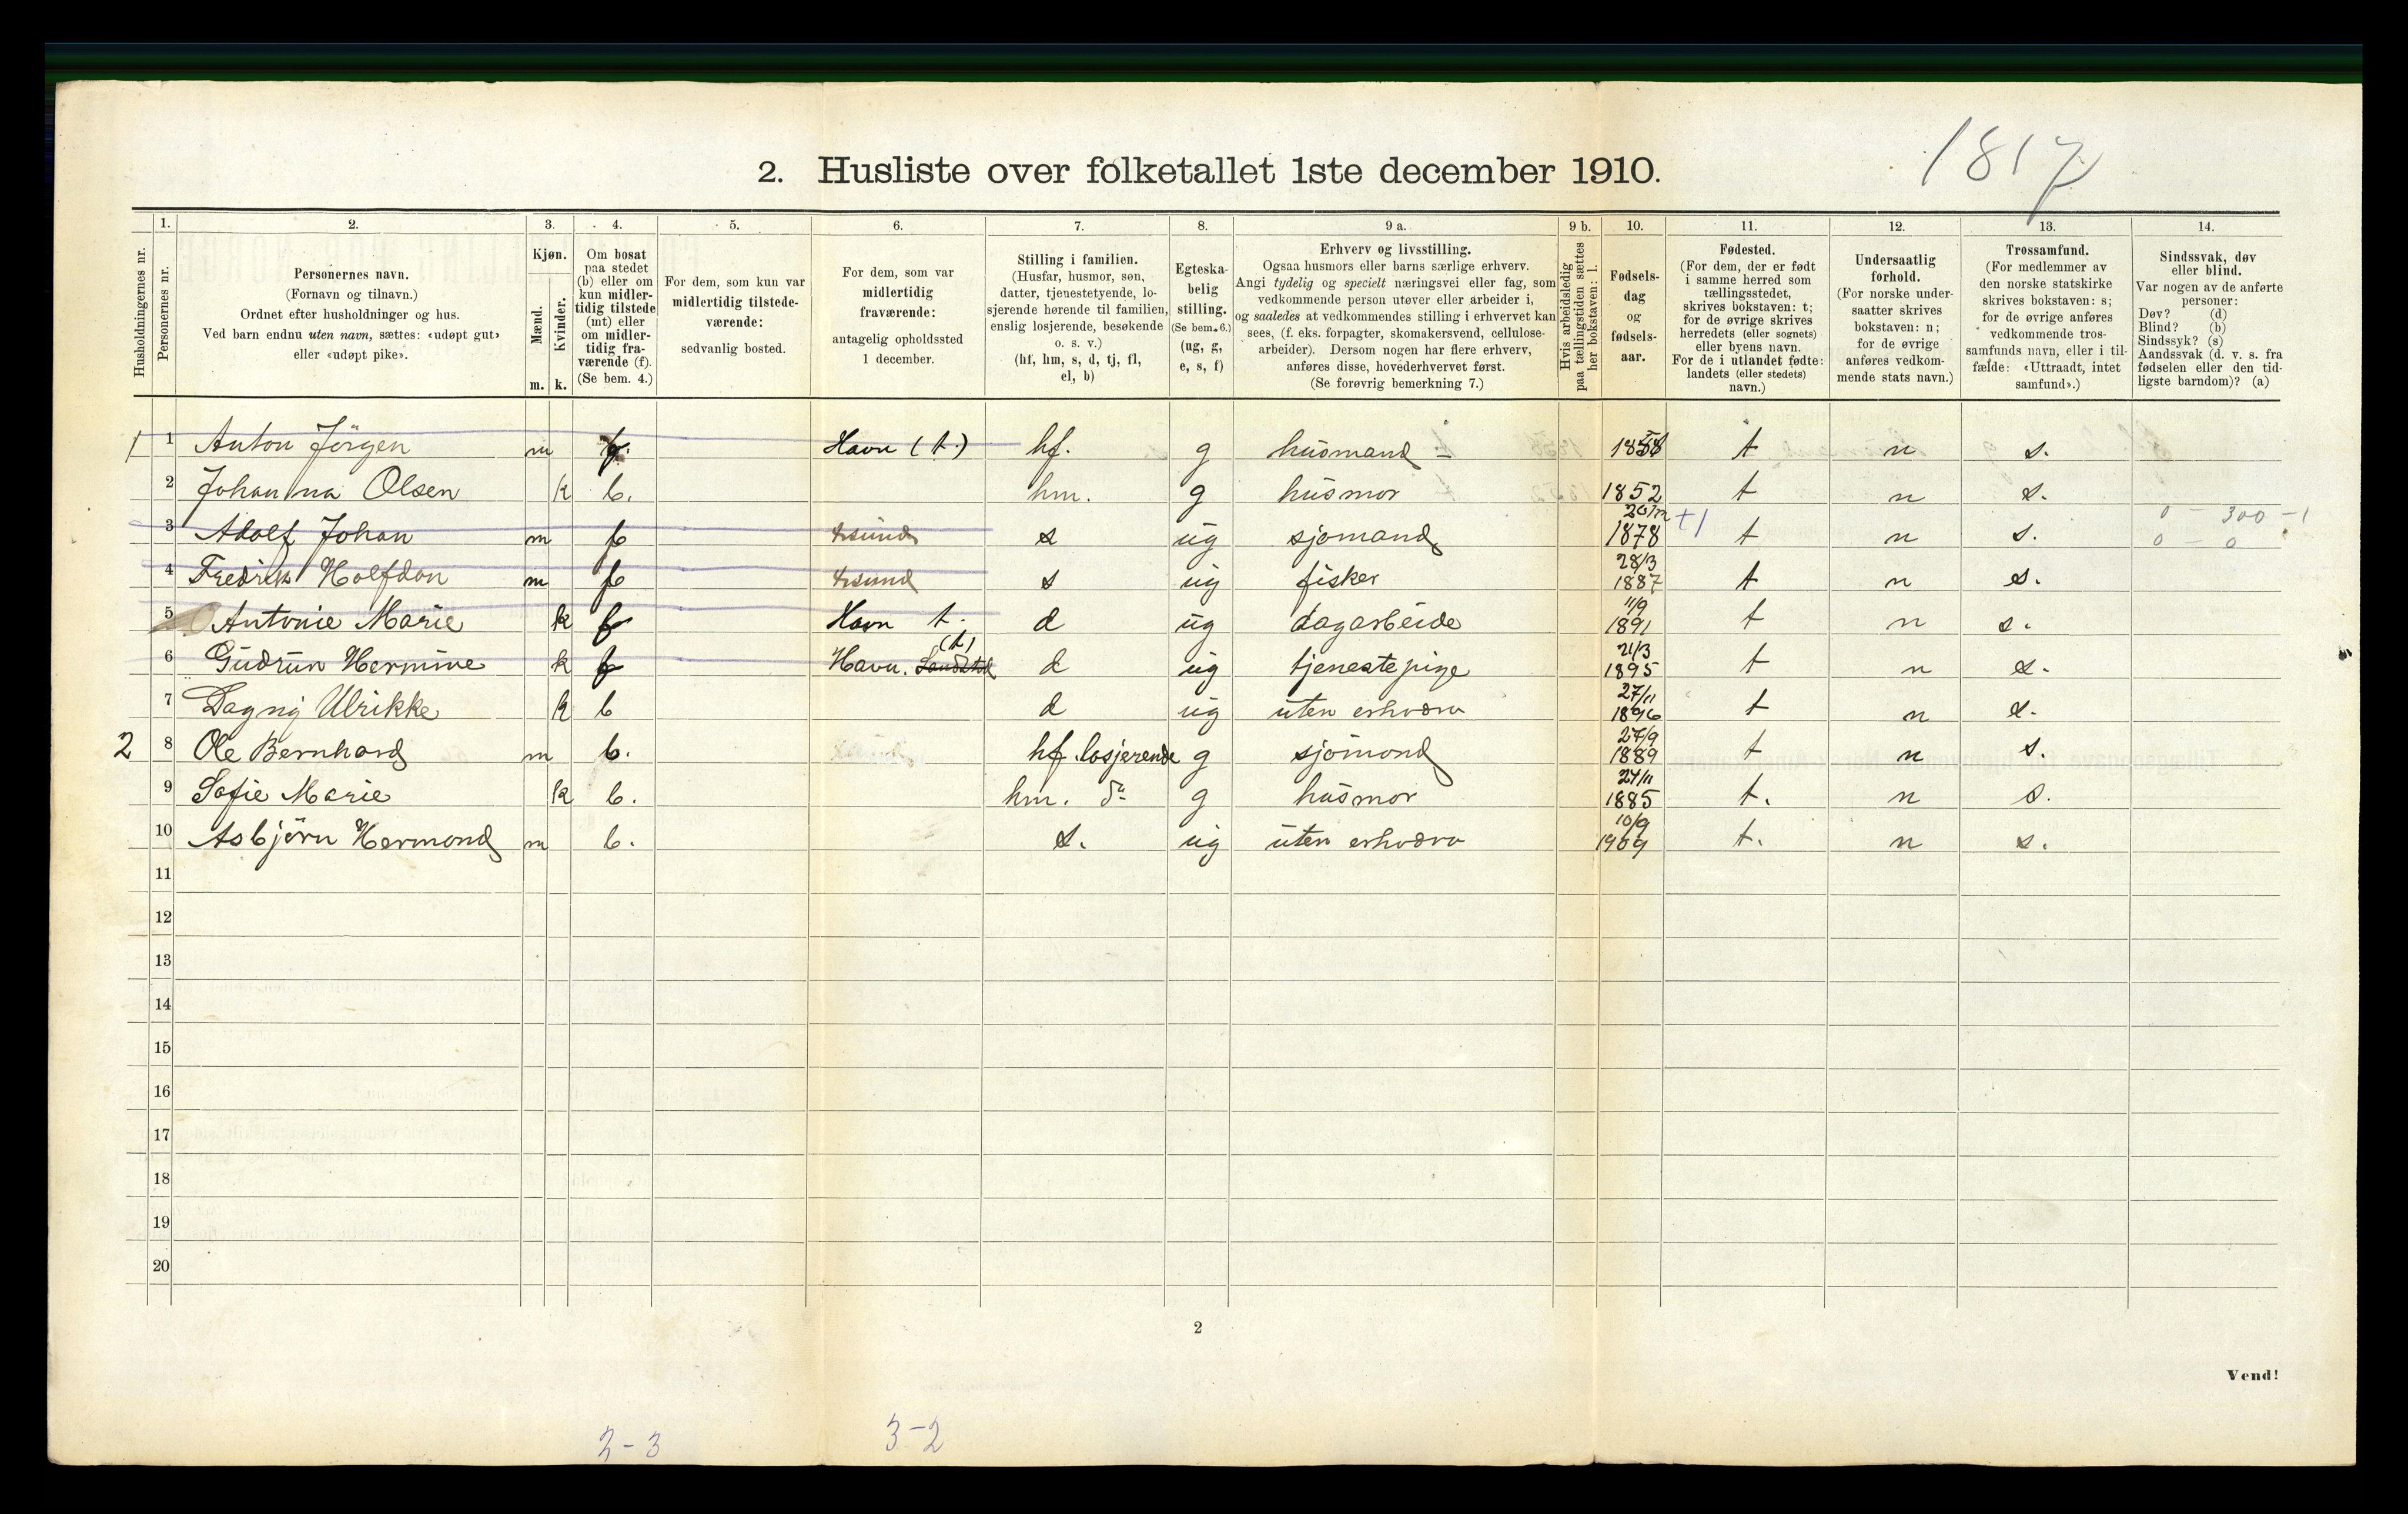 1817
2. Husliste over folketallet 1ste december 1910.
Husholdningernes nr.
1. Personernes nr.
2. Personernes navn.
(Fornavn og tilnavn.)
Ordnet efter husholdninger og hus.
Ved barn endnu uten navn, sættes: «udøpt gut»
eller «udøpt pike».
3. Kjøn.
Mænd. m.
Kvinder. k.
4. Om bosat
paa stedet
(b) eller om
kun midler-
tidig tilstede
(mt) eller
om midler-
tidig fra-
værende (f).
(Se bem. 4.)
5. For dem, som kun var
midlertidig tilstede-
værende:
sedvanlig bosted.
6. For dem, som var
midlertidig
fraværende:
antagelig opholdssted
1 december.
7. Stilling i familien.
(Husfar, husmor, søn,
datter, tjenestetyende, lo-
sjerende hørende til familien,
enslig losjerende, besøkende
o. s. v.)
(hf, hm, s, d, tj, fl,
el, b)
8. Egteska-
belig
stilling.
(Se bem. 6.)
(ug, g,
e, s, f)
9 a. Erhverv og livsstilling.
Ogsaa husmors eller barns særlige erhverv.
Angi tydelig og specielt næringsvei eller fag, som
vedkommende person utøver eller arbeider i,
og saaledes at vedkommendes stilling i erhvervet kan
sees, (f. eks. forpagter, skomakersvend, cellulose-
arbeider). Dersom nogen har flere erhverv,
anføres disse, hovederhvervet først.
(Se forøvrig bemerkning 7.)
9 b. Hvis arbeidsledig
paa tællingstiden sættes
her bokstaven: l.
10. Fødsels-
dag
og
fødsels-
aar.
11. Fødested.
(For dem, der er født
i samme herred som
tællingsstedet,
skrives bokstaven: t;
for de øvrige skrives
herredets (eller sognets)
eller byens navn.
For de i utlandet fødte:
landets (eller stedets)
navn.)
12. Undersaatlig
forhold.
(For norske under-
saatter skrives
bokstaven: n;
for de øvrige
anføres vedkom-
mende stats navn.)
13. Trossamfund.
(For medlemmer av
den norske statskirke
skrives bokstaven: s;
for de øvrige anføres
vedkommende tros-
samfunds navn, eller i til-
fælde: «Uttraadt, intet
samfund».)
14. Sindssvak, døv
eller blind.
Var nogen av de anførte
personer:
Døv? (d)
Blind? (b)
Sindssyk? (s)
Aandssvak (d. v. s. fra
fødselen eller den tid-
ligste barndom)? (a)
1 1 Anton Jörgen m Havn (t.) hf. g husmand - t n s.
2 Johanna Olsen k b. hm. g husmor 1852 t n s.
3 Adolf Johan m f s ug sjømand 1878 +1 t n s. 0 - 300 - 1
0 - 0
4 Fredrik Halfdan m f s ug fisker 28/3 1887 t n s.
5 Antonie Marie k f Havn t. d ug dagarbeide 11/9 1891 t n s.
6 Gudrun Hermine k f Havn. (t) d ug tjenestepige 21/3 1895 t n s.
7 Dagny Ulrikke k b d ug uten erhværv 27/11 1896 t n s.
2 8 Ole Bernhard m b. hf. losjerende g sjömand 27/9 1889 t n s.
9 Sofie Marie k b. hm. do g husmor 24/11 1885 t. n s.
10 Asbjörn Hermand m b. s. ug uten erhværv 10/9 1909 t. n s.
11
12
13
14
15
16
17
18
19
20
2
Vend!
2-3 3-2